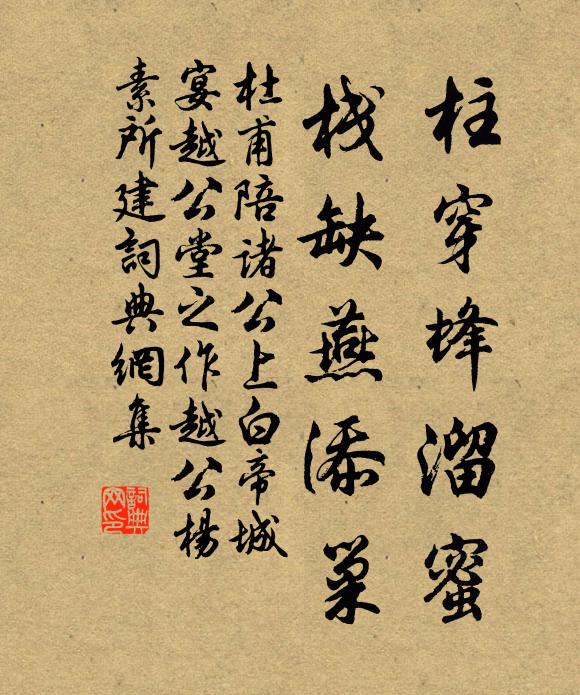 柱穿蜂溜蜜
栈缺燕添巢
杜甫陪诸公上白帝城
宴越公堂之作越公楊
素所建詞典網集
詞典
网印